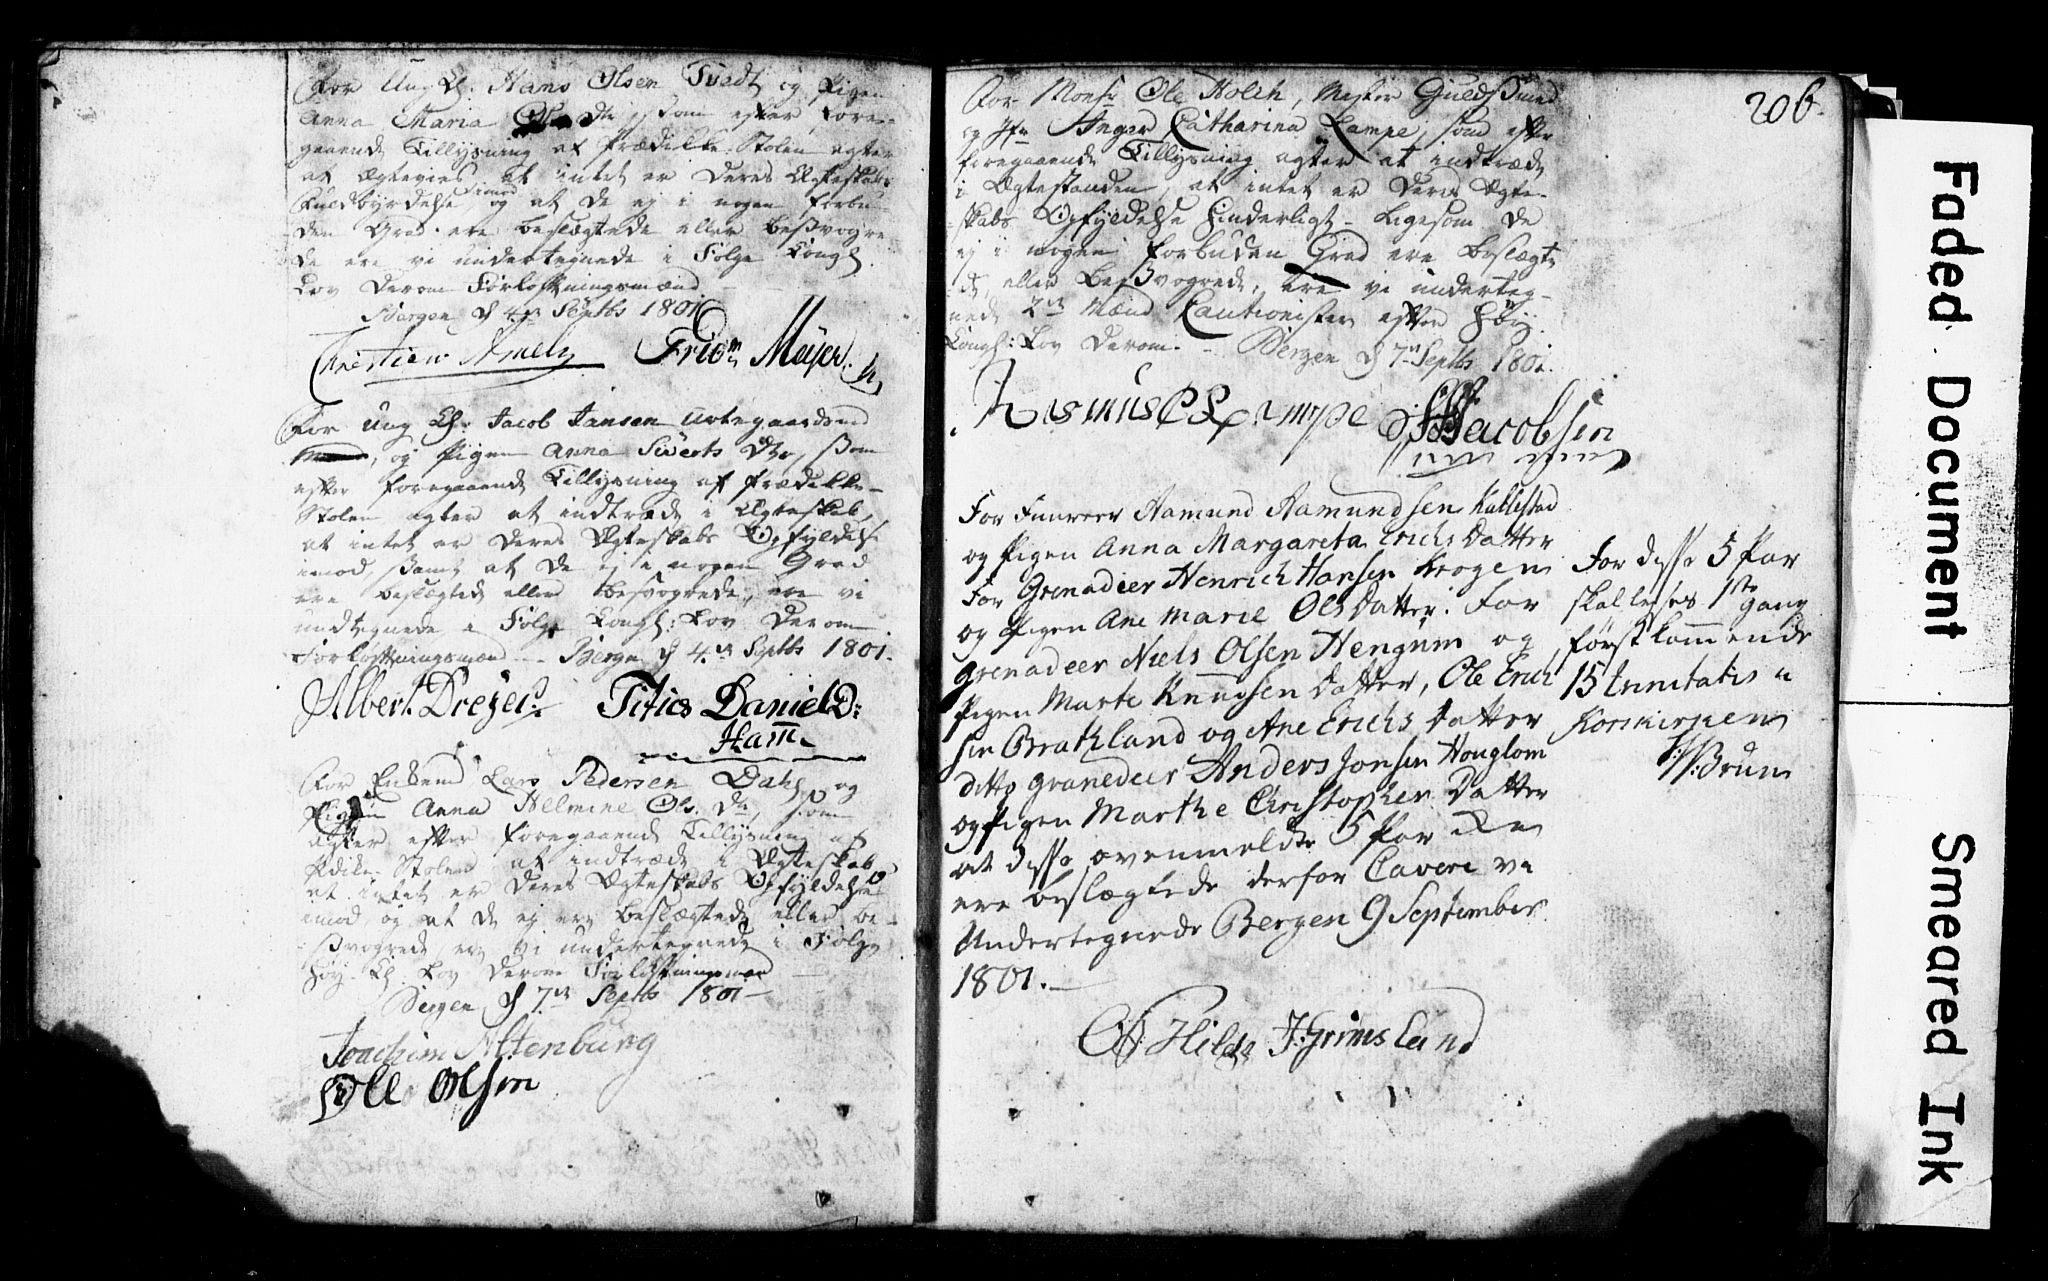 For Ung K. Hans Olsen Tvedt og Pigen
Anna Maria Ols Dtr, som efter fore-
gaaende Tillysning af Prædikke-Stolen agter
at Ægtevies at intet er Deres Ægteskabs
Fuldbyrdelse imod og at De ej i nogen forbu-
den Grad ere beslægtede eller besvogre
de ere vi undertegnede i Følge Kongl.
Lov Derom Forlovtningsmænd
Bergen d 4de Septbr 1801
Christian Friem Meyer
For Ung K. Jacob Jansen Urtegaardsmd
og Pigen Anna Siverts Dtr, som
efter foregaaende Tillysning af Prædikke-
Stolen agter at indtræde i Ægteskab,
at intet er Deres Ægteskabs Opfyldelse
imod, samt at De ej i nogen Grad
ere beslægtede eller besvogrede, ere vi
undtegnede i Følge Kongl: Lov Derom
Forlovtningsmænd - Bergen d 4de Septbr 1801.
Albert Dreyer. Titics Daniel D:
Ham
For Enkemd Lars Pedersen Dahl og
Pigen Anna Helmine Ols. Dtr, som
agter efter foregaaende Tillysning af
Stolen at indtræde i Ægteskab
at intet er Deres Ægteskabs Opfyldelse
imod, og at De ej ere beslægtede eller be-
svogrede ere vi undertegnede i Følge
Høy Kl. Lov Derom Forlovtningsmænd
Bergen d 7de Septbr 1801
Joachim Altenburg
Olle Olsen
206.
For Monsr Ole Holch, Mester Guldsmed
og Jfr Inger Catharina Lampe, som efter
foregaaende Tillysning agter at indtræde
i Ægtestanden, at intet er Deres Ægte-
skabs Opfyldelse hinderligt - Ligesom De
ej i nogen forbuden Grad ere beslægte
de eller besvogrede, ere vi underteg-
nede 2de Mænd Cautionister efter Høy
Kongl: Lov Derom. - Bergen d 7de Septbr 1801.
Rasmus Lampe Jacobsen
For Fuureer Aamund Aamundsen Kallestad
og Pigen Anna Margareta Erichs Datter
For Grenadeer Henrich Hansen Krogen
og Pigen Ane Marie Ols Datter. For
Grenadeer Niels Olsen Hengum og
Pigen Marte Knudsen Datter, Ole Erich
sen Brathland og Ane Erichs Datter
Ditto Granedeer Anders Jonsen Houglom
og Pigen Marthe Christopher Datter
at disse ovenmeldte 5 Par Ike
ere beslægtede derfor Cavere vi
Undertegnede Bergen 9 September
1801.
Hilde J: Grimsland
For disse 5 Par
skal leses 1ste gang
først kommende
15 Trinitatis i
Korskirken
Bruun
Faded Document
Smeared Ink